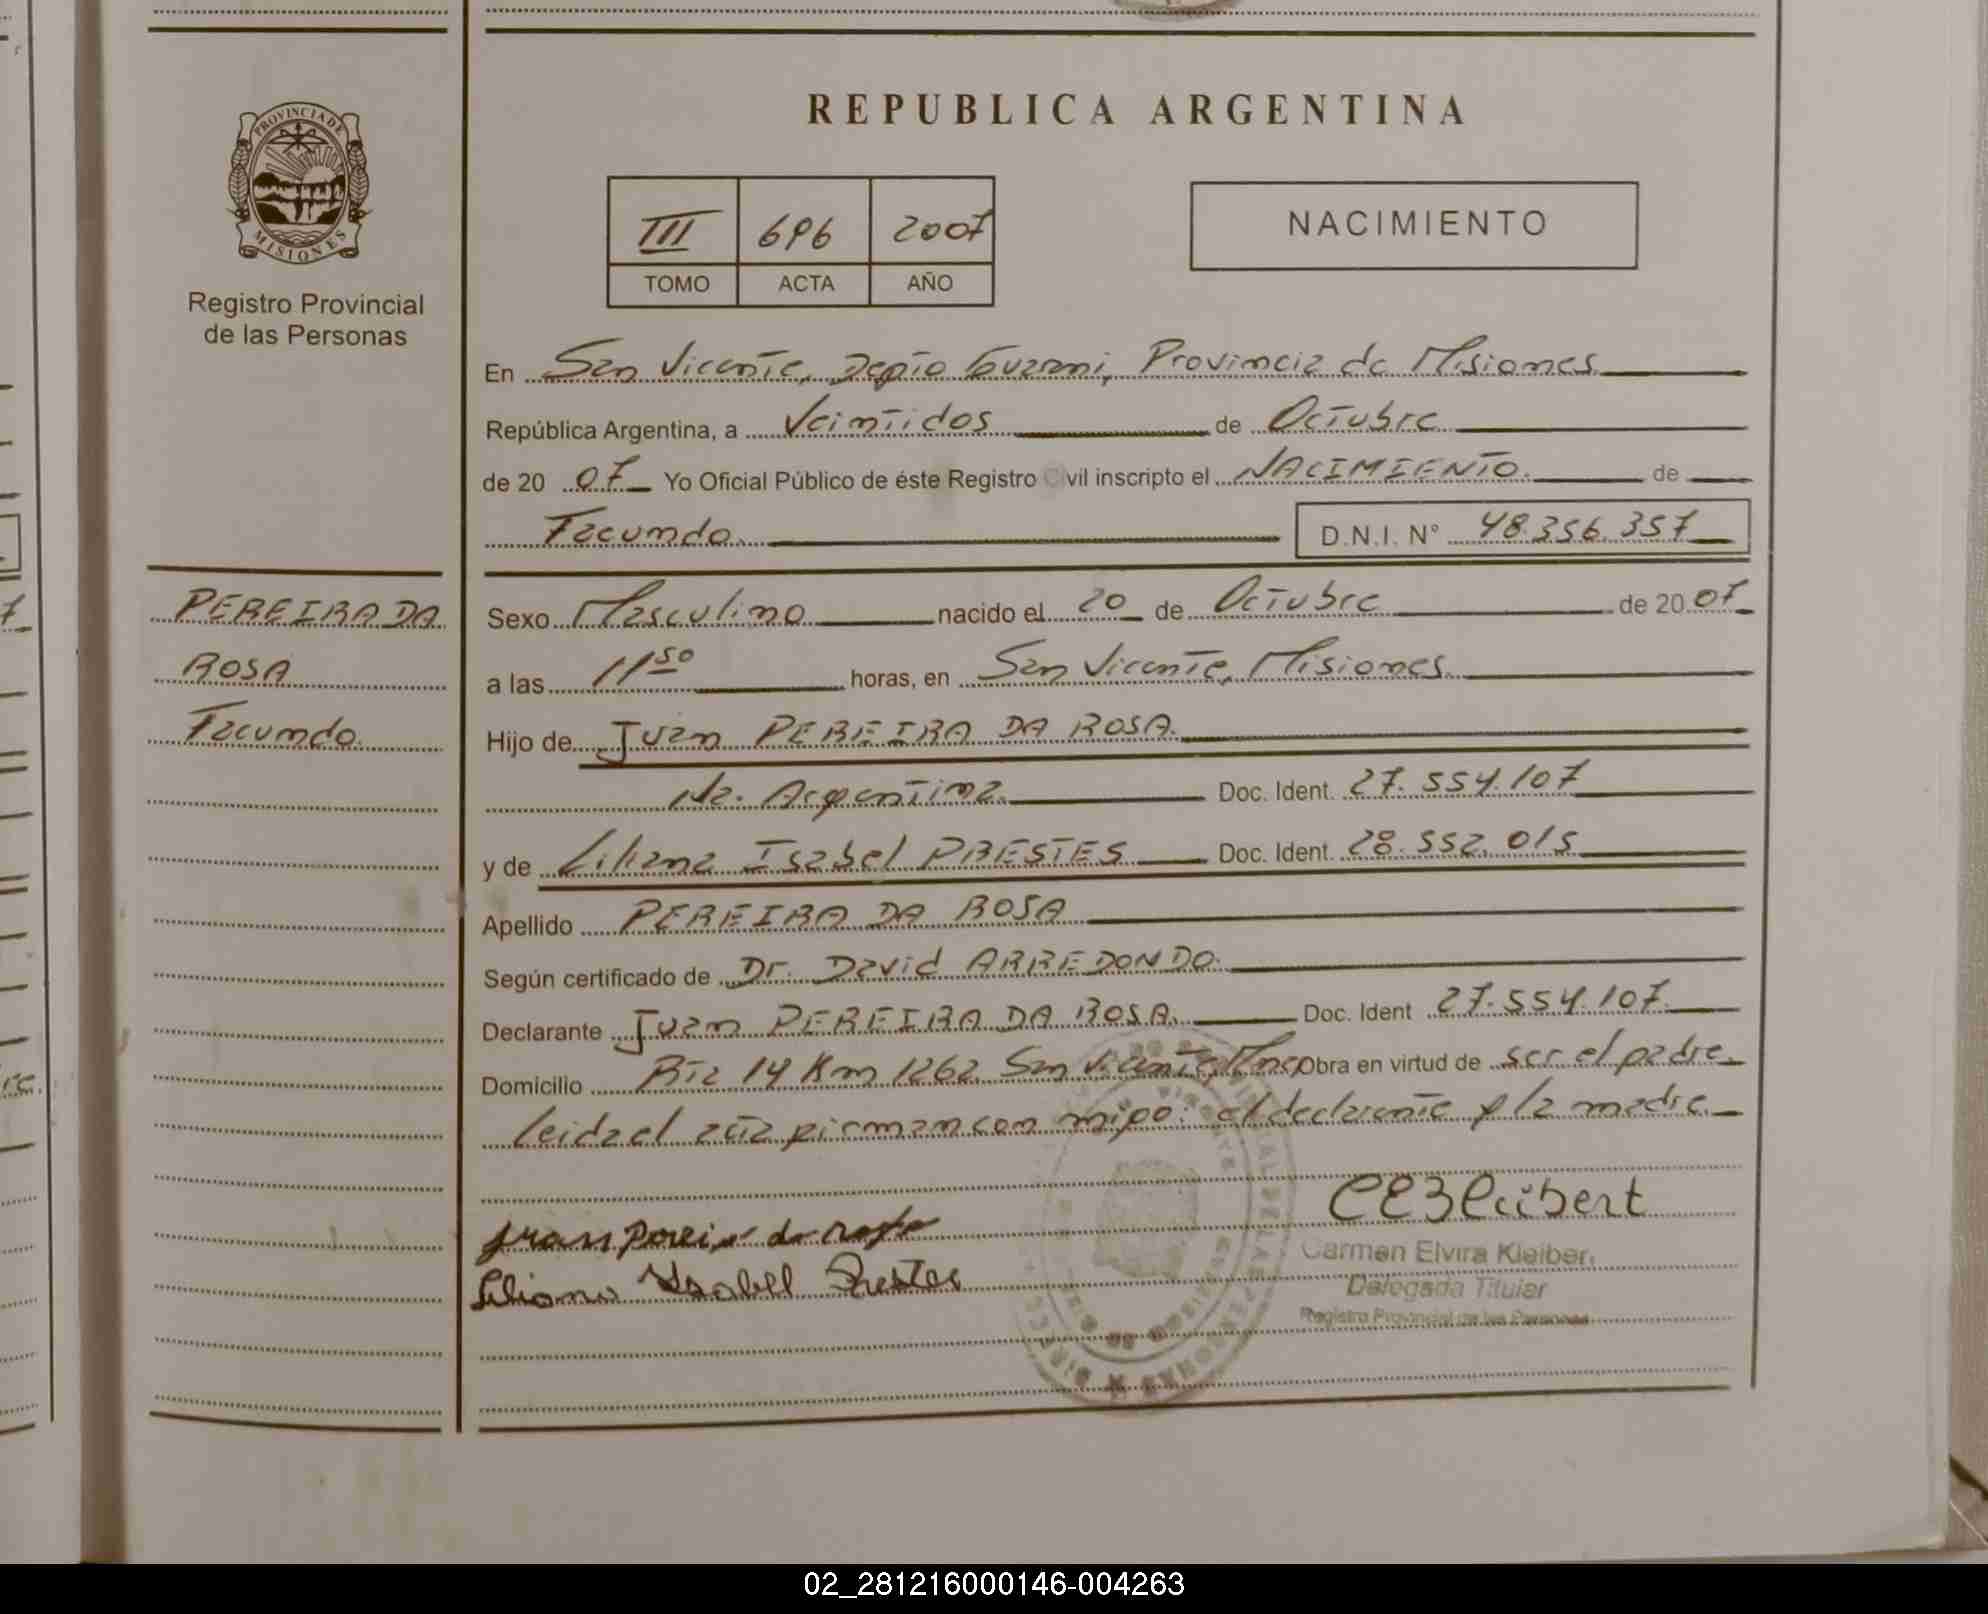 REPUBLICA ARGENTINA
PROVINCIA DE
MISIONES
Registro Provincial
de las Personas
III 696 2007
TOMO ACTA AÑO
NACIMIENTO
En San Vicente, Depto Guarani, Provincia de Misiones
República Argentina, a Veintidos de Octubre
de 20 07 Yo Oficial Público de éste Registro Civil inscripto el NACIMIENTO. de
Facundo. D.N.I. N° 48.356.357
PEREIRA DA
ROSA
Facundo.
Sexo Masculino nacido el 20 de Octubre de 20 07
a las 11 50 horas, en San Vicente, Misiones.
Hijo de Juan PEREIRA DA ROSA.
Na. Argentina. Doc. Ident. 27.554.107
y de Liliana Isabel PRESTES Doc. Ident. 28.552.015
Apellido PEREIRA DA ROSA
Según certificado de Dr. David ARREDONDO.
Declarante Juan PEREIRA DA ROSA. Doc. Ident 27.554.107.
Domicilio Rta 14 Km 1262 San Vicente, Mnes Obra en virtud de ser el padre
Leida el acta firman con migo: el declarante y la madre.
Liliana Ysabell Prestes
Carmen Elvira Kleiber
Delegada Titular
Registro Provincial de las Personas
02_281216000146-004263